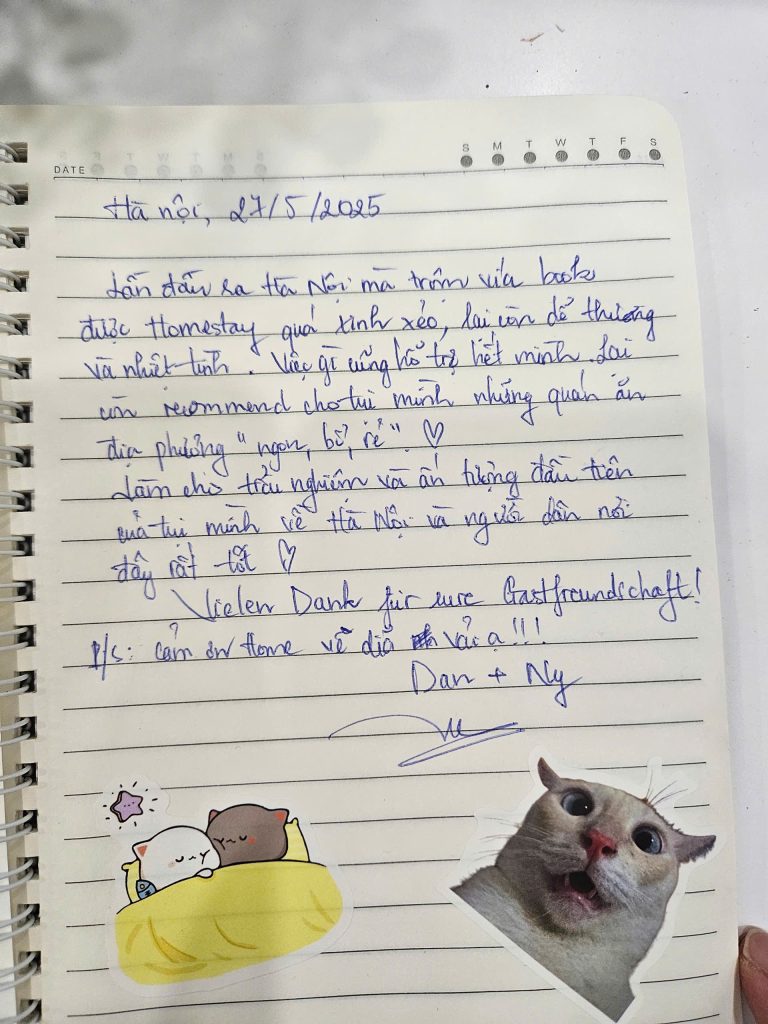 S M T W T F S
DATE
Hà nội, 27/5/2025
Lần đầu ra Hà Nội mà trộm vía book
được Homestay quá xinh xẻo, lại còn dể thương
và nhiệt tình. Việc gì cũng hổ trợ hết mình. Lại
còn recommend cho tụi mình những quán ăn
địa phương "ngon, bổ, rẻ". ♡
Làm cho trải nghiệm và ấn tượng đầu tiên
của tụi mình về Hà Nội và người dân nơi
đây rất tốt ♡
Vielen Dank für eure Gastfreundschaft!
P/s: cảm ơn Home về dĩa vải ạ!!!
Dan + Ny